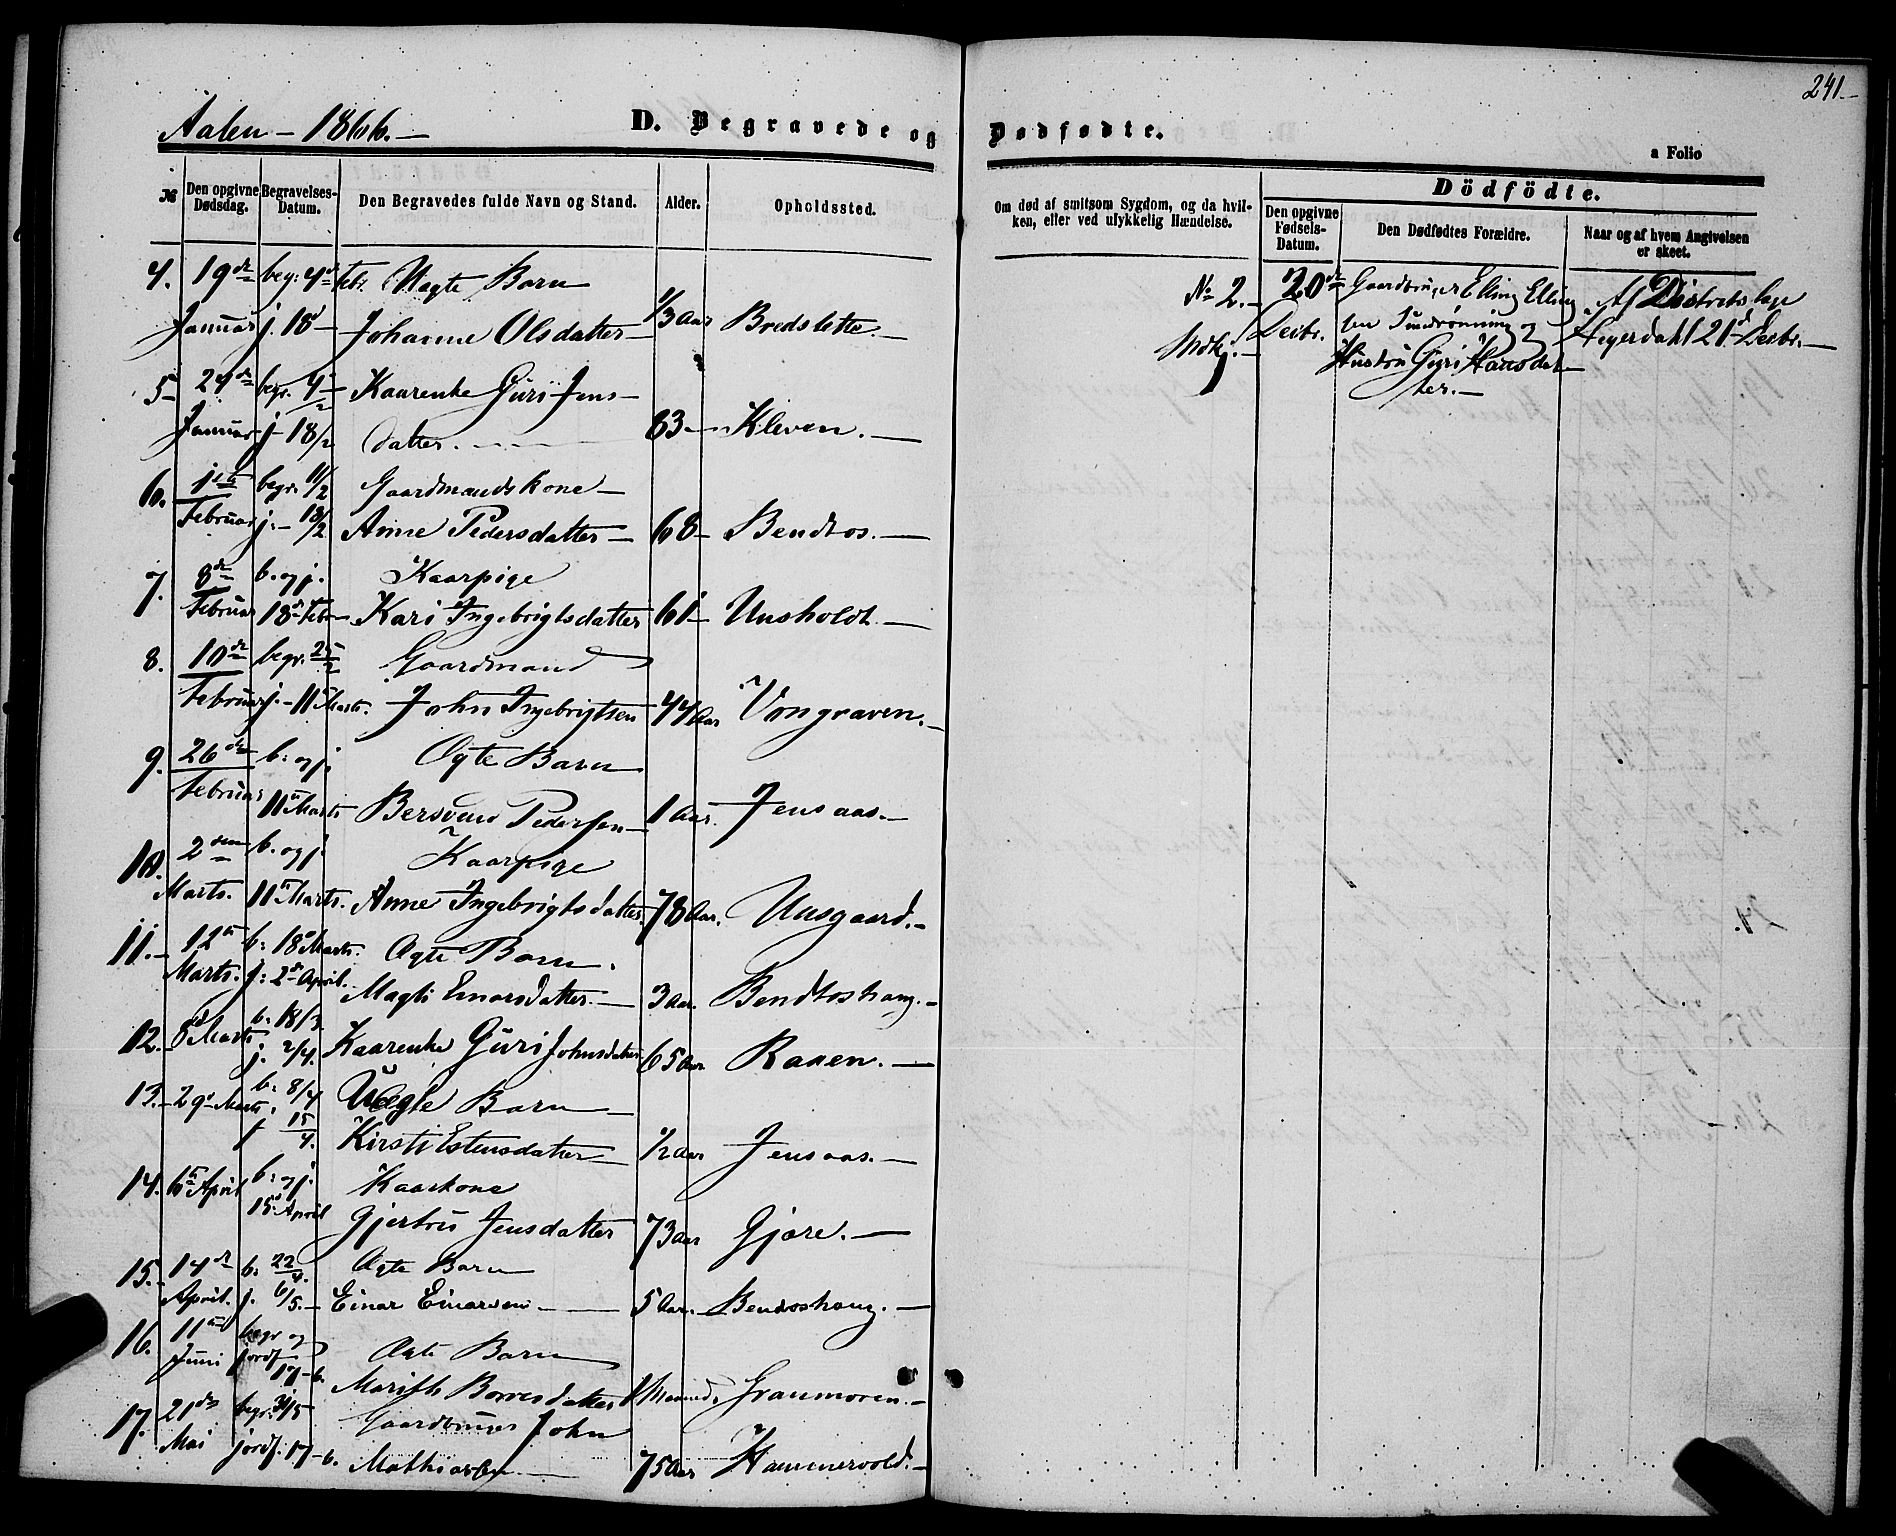 241.-
Aalen - 1866.-
D. Begravede og Dødfødte.
a Folio
№ Den opgivne Dødsdag. Begravelses-Datum. Den Begravedes fulde Navn og Stand. Alder. Opholdssted.
Om død af smitsom Sygdom, og da hvilken, eller ved ulykkelig Hændelse.
Dödfödte.
Den opgivne Fødsels-Datum. Den Dødfødtes Forældre. Naar og af hvem Angivelsen er skeet.
4. 19de beg: 4de Febr. Uægte Barn
Januar j. 18 - Johanne Olsdatter - 1/3 Aar Bredslette. -
5 - 24de begr. 4/2 Kaarenke Guri Jens-
Januar j - 18/2 datter. - 83 - Kleven. -
6. 1ste begr. 11/2 Gaardmandskone -
Februar j. - 18/2 Anne Pedersdatter - 68 - Bendtos. -
7. 8de b. og j. Kaarpige
Februar 18de Febr. - Kari Ingebrigtsdatter 61 - Unsholdt. -
8. 10de begr. 25/2 Gaardmand
Februar j. - 11te Marts. John Ingebrigtsen 44 Aar Vongraven. -
9. 26de b: og j. Ægte Barn
Februar 11te Marts Bersvend Pedersen - 1 Aar. Jensaas. -
10. 2den b. og j. Kaarpige
Marts. 11te Marts. Anne Ingebrigtsdatter 78 Aar. Unsgaard. -
11. - 12te b: 18de Marts. Ægte Barn.
Marts. j: 2de April. Magli Enarsdatter. - 3 Aar. Bendtoshaug. -
12. 5te Marts b. 18/3
j. 2/4. Kaarenke Guri Johnsdatter 65 Aar Raaen. -
13. - 29de Marts. b: 8/4 Uægte Barn -
j 15/4. Kirsti Estensdatter 1/2 Aar Jensaas. -
14. 6te April b. og j. Kaarkone
15de April Gjertrud Jensdatter 73 Aar Gjøre. -
15. - 14de b. 22/4. Ægte Barn
April. j. 6/5. - Einar Einarsen - 5 Aar. - Bendoshaug. -
16. 11te begr og Ægte Barn
Juni jordf.
17-6. Borresdatter 1 Maaned. Graumoren. -
17. 21de begr. 31/5 Gaardbruger John
Mai jordf. 17-6. Mathiasen. - 75 Aar Hammervold. -
No 2. - 20de Gaardbruger Elling Elling Af Distrets læge
Mdkj. - Decbr. sen og Hegerdahl 21de Decbr. -
Hustru Guri Hansdat-
ter. -